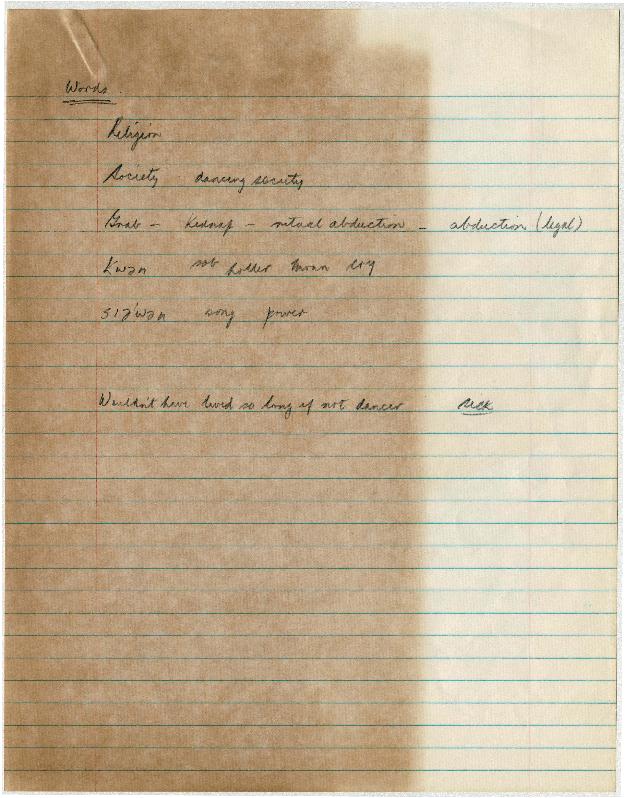 Words
Religion
Society dancing society
Grab - kidnap - ritual abduction - abduction (legal)
Kwən sob holler moan cry
siə'wən song power
Wouldn't have lived so long if not dancer sick